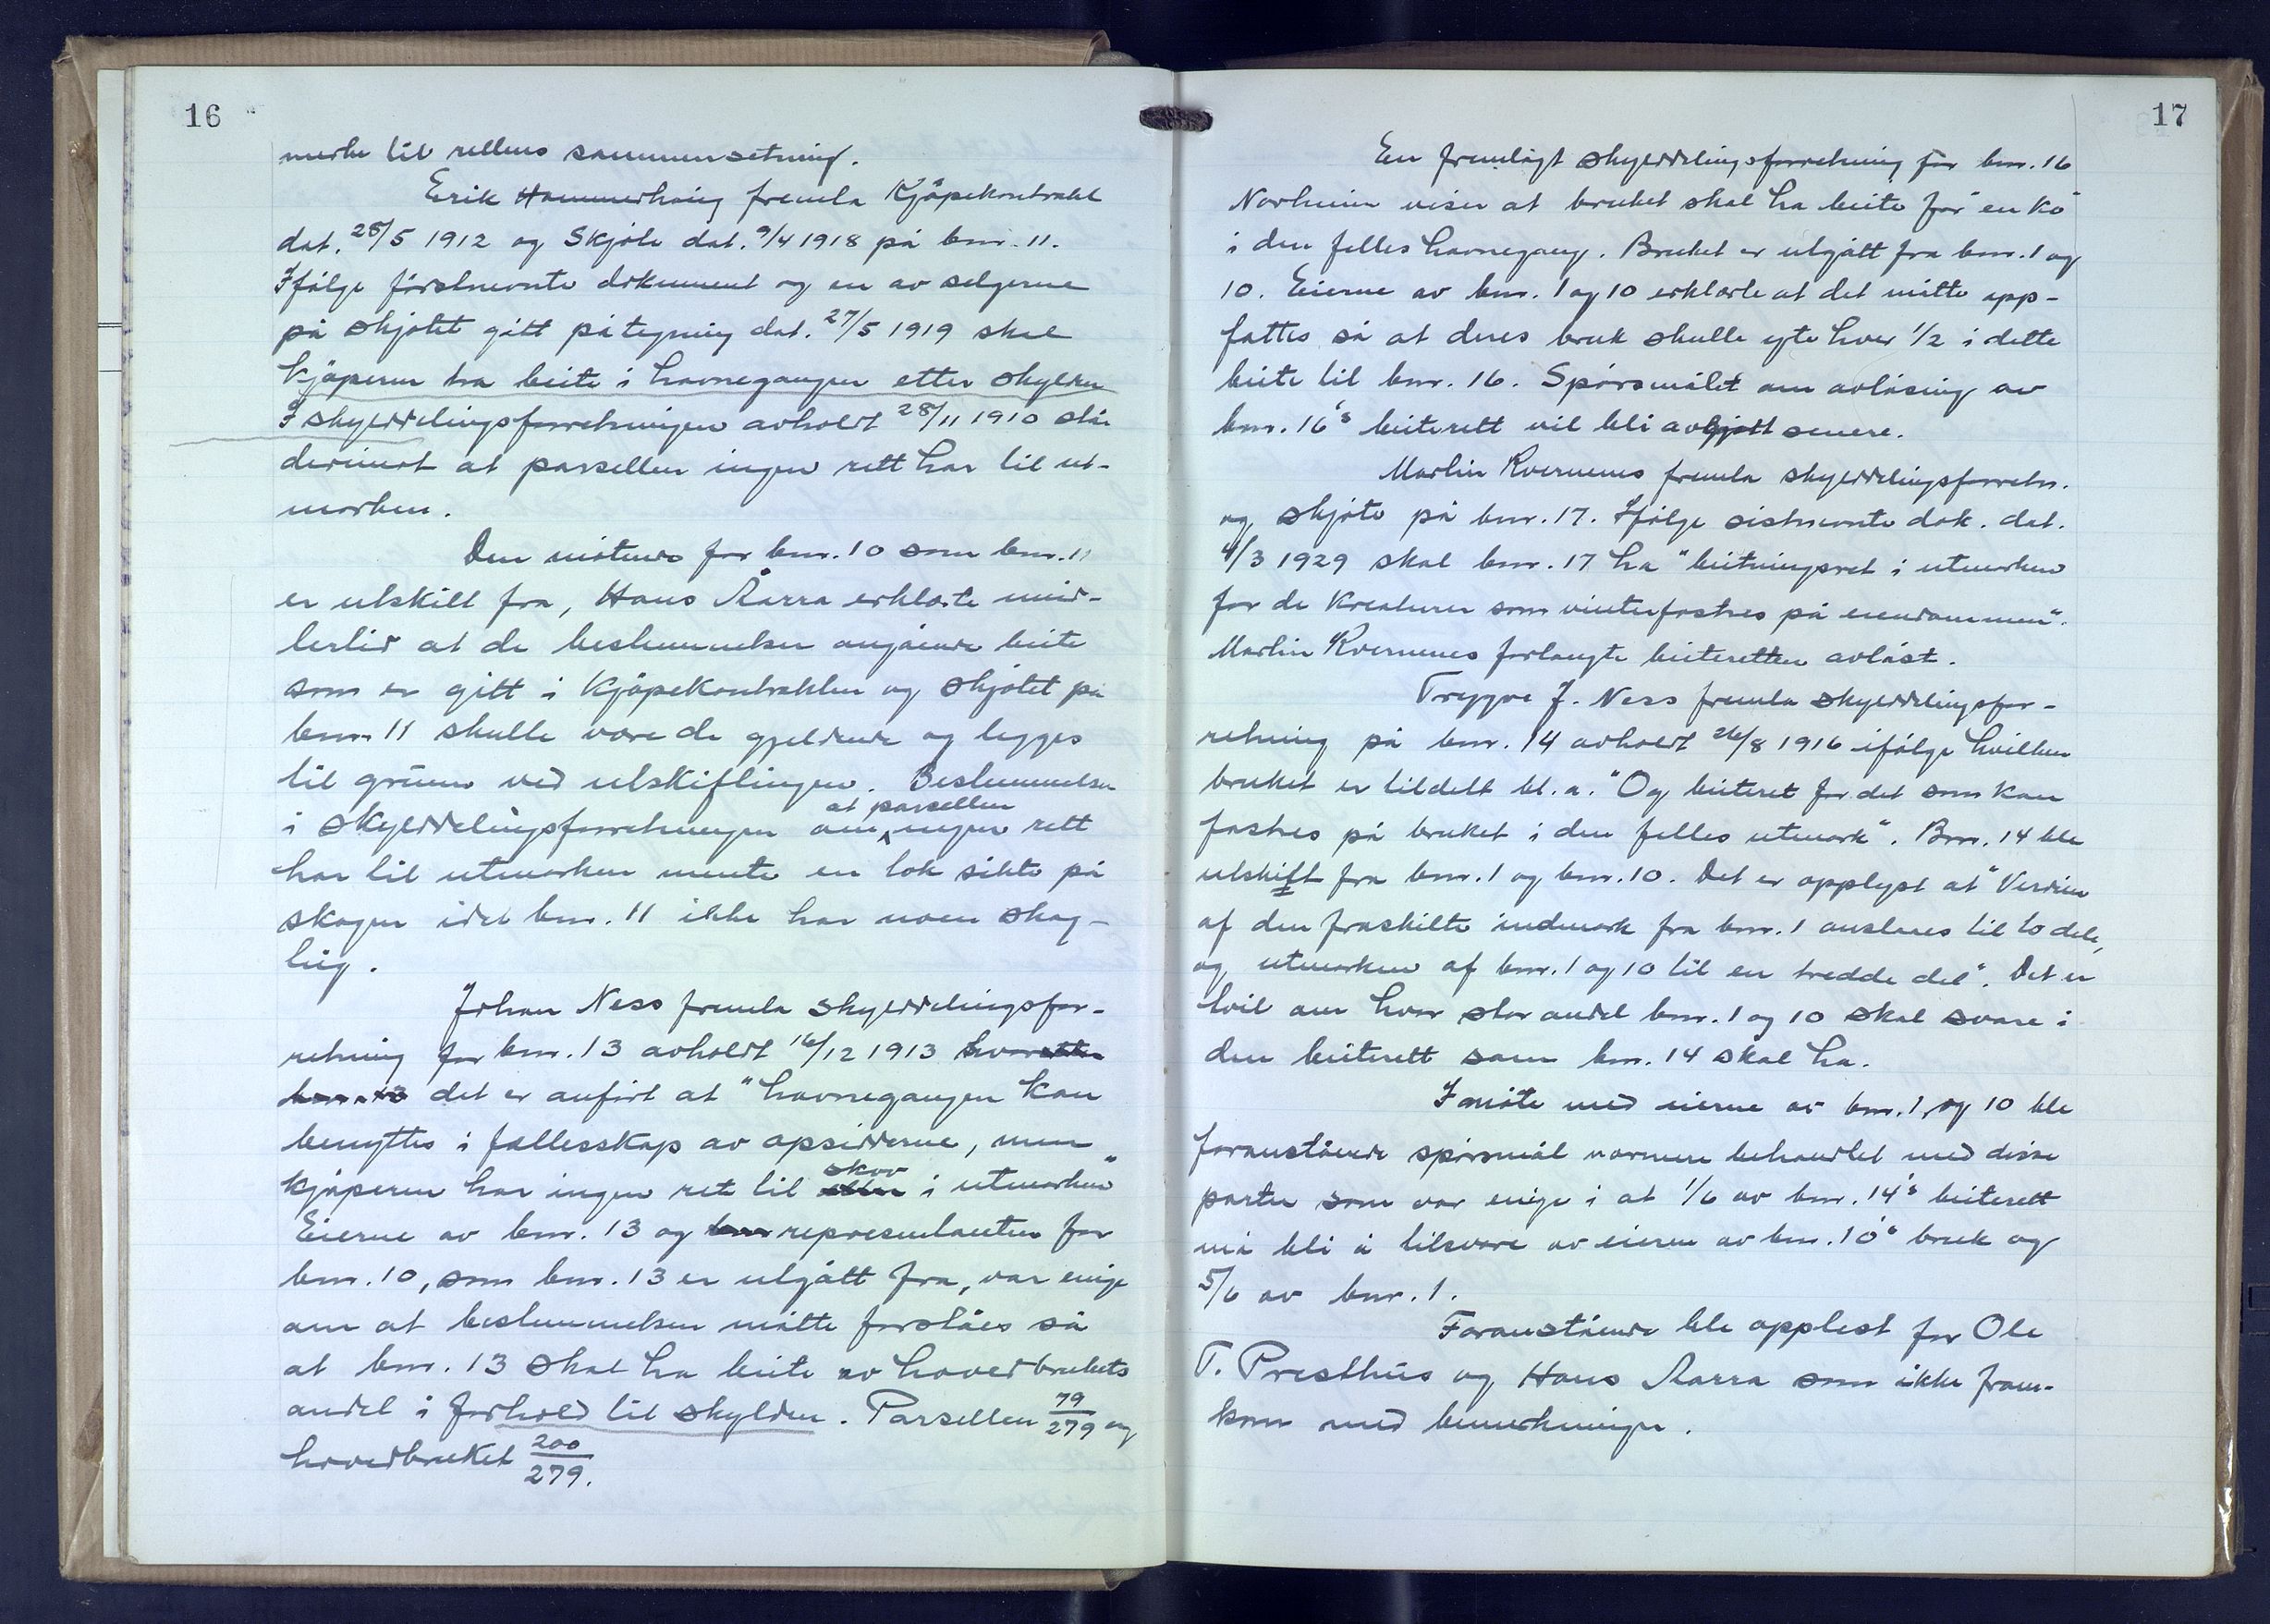 16
merke til rettens sammensetning.
Erik Hammerhaug fremla Kjöpekontrakt
dat. 28/5 1912 og Skjöte dat. 9/4 1918 på bnr. 11.
Ifölge förstnevnte dokument og en av selgerne
på skjötet gitt påtegning dat. 27/5 1919 skal
kjöperen ha beite i havnegangen etter skylden
I skylddelingsforretningen avholdt 28/11 1910 står
derimot at parsellen ingen rett har til ut-
marken.
Den mötende for bnr. 10 som bnr. 11
er utskilt fra, Hans Aarra erklærte imid-
lertid at de bestemmelser angående beite
som er gitt i Kjöpekontrakten og skjötet på
bnr. 11 skulle være de gjeldende og legges
til grunn ved utskiftingen. Bestemmelsen
at parsellen
i skylddelingsforretningen om ingen rett
har til utmarken mente en tok sikte på
skogen idet bnr. 11 ikke har noen skog-
teig.
Johan Ness fremla skylddelingsfor-
retning for bnr. 13 avholdt 16/12 1913 hvoretter
bnr. 13 det er anfört at "havnegangen kan
benyttes i fællesskap av opsidderne, men
skov
kjöperen har ingen ret til i utmarken"
Eierne av bnr. 13 og bnr representanten for
bnr. 10, som bnr. 13 er utgått fra, var enige
om at bestemmelsen måtte forståes så
at bnr. 13 skal ha beite av hovedbrukets
andel i forhold til skylden. Parsellen 79/279 og
hovedbruket 200/279.
17
En fremlagt skylddelingsforretning for bnr. 16
Norheim viser at bruket skal ha beite for "en ko"
i den felles havnegang. Bruket er utgått fra bnr. 1 og
10. Eierne av bnr. 1 og 10 erklærte at det måtte opp-
fattes så at deres bruk skulle yte hver 1/2 i dette
beite til bnr. 16. Spörsmålet om avlösing av
bnr. 16's beiterett vil bli avgjort senere.
Martin Kvernenes fremla skylddelingsforretn.
og skjöte på bnr. 17. Ifölge sistnevnte dok. dat.
4/3 1929 skal bnr. 17 ha "beitningsret i utmarken
for de Kreaturer som vinterfostres på eiendommen".
Martin Kvernenes forlangte beiteretten avlöst.
Trygve J. Ness fremla skylddelingsfor-
retning på bnr. 14 avholdt 26/8 1916 ifölge hvilken
bruket er tildelt bl. a. "Og beiteret for det som kan
fostres på bruket i den felles utmark". Bnr. 14 ble
utskift fra bnr. 1 og bnr. 10. Det er opplyst at "Verdien
af den fraskilte indmark fra bnr. 1 ansl​aes til to dele,
og utmarken af bnr. 1 og 10 til en tredde del". Det er
tvil om hvor stor andel bnr. 1 og 10 skal svare i
den beiterett som bnr. 14 skal ha.
I möte med eierne av bnr. 1 og 10 ble
foranstående spörsmål nærmere behandlet med disse
parter som var enige i at 1/6 av bnr. 14's beiterett
må bli å tilsvare av eieren av bnr. 10's bruk og
5/6 av bnr. 1.
Foranstående ble opplest for Ole
T. Presthus og Hans Aarra som ikke frem-
kom med bemerkninger.